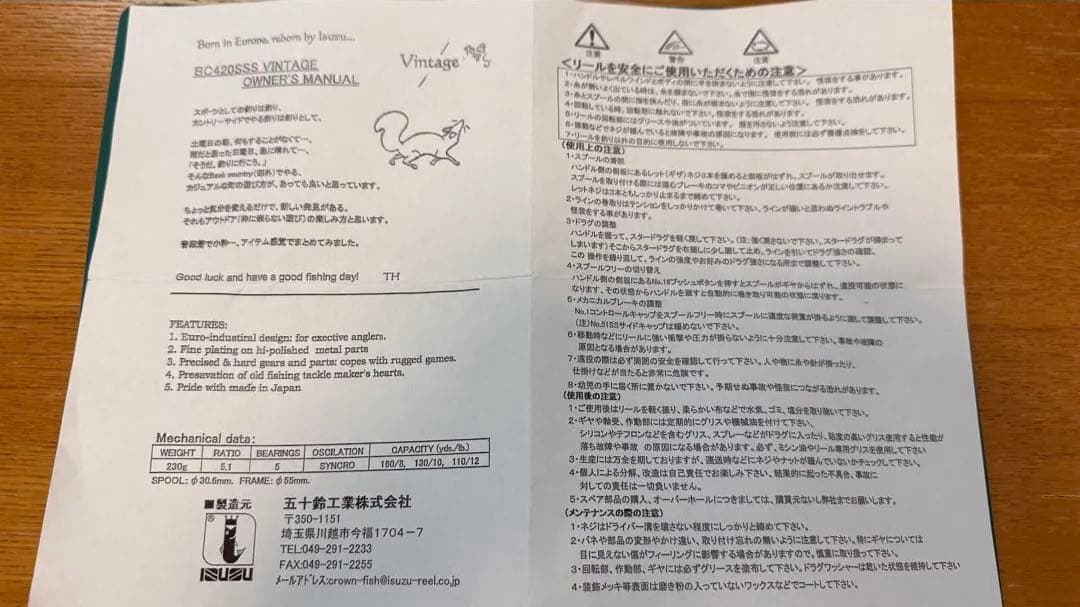 Born in Europe, reborn by Isuzu...
BC420SSS VINTAGE
OWNER'S MANUAL
Vintage
スポーツとしての釣りは釣り、
カントリーサイドでやる釣りは釣りとして、
土曜日の朝、何もすることがなくて…、
雨だと思った日曜日、急に晴れて…、
「そうだ、釣りに行こう。」
そんなBack country(郊外)でやる、
カジュアルな町の遊び方が、あっても良いと思っています。
ちょっと気分を変えるだけで、新しい発見がある。
それもアウトドア(枠に嵌らない遊び)の楽しみ方と思います。
普段着で小粋…、アイテム感覚でまとめてみました。
Good luck and have a good fishing day! TH
FEATURES:
1. Euro-industiral design: for exective anglers.
2. Fine plating on hi-polished metal parts
3. Precised & hard gears and parts: copes with rugged games.
4. Presavation of old fishing tackle maker's hearts.
5. Pride with made in Japan
Mechanical data:
WEIGHT RATIO BEARINGS OSCILATION CAPACITY (yds./lb.)
230g 5.1 5 SYNCRO 160/8, 130/10, 110/12
SPOOL: φ30.6mm. FRAME: φ55mm.
■製造元
ISUZU
五十鈴工業株式会社
〒350-1151
埼玉県川越市今福1704-7
TEL:049-291-2233
FAX:049-291-2255
メールアドレス:crown-fish@isuzu-reel.co.jp
注意 警告 注意
<リールを安全にご使用いただくための注意>
1・ハンドルやレベルワインドとボディの間に手を挟まないように注意して下さい。 怪我をする事があります。
2・糸が勢いよく出ている時は、糸を掴まないで下さい。糸で指に怪我をする恐れがあります。
3・糸とスプールの間に指を挟んだり、指に糸が絡まないように注意して下さい。 怪我をする恐れがあります。
4・回転している時、回転部に触れないで下さい。怪我をする恐れがあります。
5・リールの回転部にはグリースや油がついています。 服を汚さないよう注意して下さい。
6・振動などでネジが緩んでいると故障や事故の原因になります。 使用前には必ず整備点検をして下さい。
7・リールを釣り以外の目的に使用しないで下さい。
(使用上の注意)
1・スプールの着脱
ハンドル側の側板にあるレット(ギザ)ネジ3本を緩めると側板がはずれ、スプールが取り出せます。
スプールを取り付ける際には遠心ブレーキのコマやピニオンが正しい位置にあるか注意して下さい。
レットネジは3本ともしっかり止まるまで締めて下さい。
2・ラインの巻取りはテンションをしっかりかけて巻いて下さい。ラインが緩いと思わぬライントラブルや
怪我をする事があります。
3・ドラグの調整
ハンドルを握って、スタードラグを軽く戻して下さい。(注:強く戻さないで下さい、スタードラグが締まって
しまいます)そこからスタードラグを右側に少し回して止め、ラインを引いてドラグ強さの確認、
この 操作を繰り返して、ラインの強度やお好みのドラグ強さになる所まで調整して下さい。
4・スプールフリーの切り替え
ハンドル側の側板にあるNo.18プッシュボタンを押すとスプールがギヤからはずれ、遠投可能の状態に
なります、その状態からハンドルを回すと自動的に巻き取り可能の状態に戻ります。
5・メカニカルブレーキの調整
No.1コントロールキャップをスプールフリー時にスプールに適度な荷重が掛るように回して調整して下さい。
(注)No.51SSサイドキャップは緩めないで下さい。
6・移動時などにリールに強い衝撃や圧力が掛らないように十分注意して下さい。事故や故障の
原因となる場合があります。
7・遠投の際は必ず周囲の安全を確認して行って下さい。人や物に糸や針が掛ったり、
仕掛けなどが当たると非常に危険です。
8・幼児の手に届く所に置かないで下さい。予期せぬ事故や怪我につながる恐れがあります。
(使用後の注意)
1・ご使用後はリールを軽く振り、柔らかい布などで水気、ゴミ、塩分を取り除いて下さい。
2・ギヤや軸受、作動部には定期的にグリスや機械油を付けて下さい、
シリコンやテフロンなどを含むグリス、スプレーなどがドラグに入ったり、粘度の高いグリス使用すると性能が
落ち故障や事故 の原因になる場合があります。必ず、ミシン油やリール専用グリスを使用して下さい
3・生産には万全を期しておりますが、運送時などにネジやナットが緩んでいないかチェックして下さい。
4・個人による分解、改造は自己責任でお楽しみ下さい、結果的に起った不具合、事故に
対しての責任は一切負いません。
5・スペア部品の購入、オーバーホールにつきましては、購買元ないし弊社までお願いします。
(メンテナンスの際の注意)
1・ネジはドライバー溝を壊さない程度にしっかりと締めて下さい。
2・バネや部品の変形やかけ違い、取り付け忘れの無いように注意して下さい。特にギヤについては
目に見えない傷がフィーリングに影響する場合がありますので、慎重に取り扱って下さい。
3・回転部、作動部、ギヤには必ずグリースを塗布して下さい。ドラグワッシャーは乾いた状態を維持して下さい
4・装飾メッキ等表面は磨き粉の入っていないワックスなどでコートして下さい。